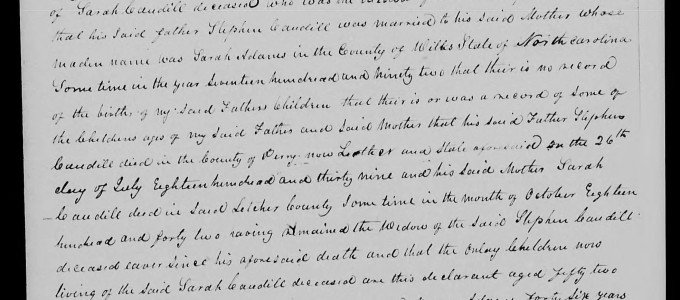 of Sarah Caudill deceased who was the
that his said father Stephen Caudill was married to his said Mother whose
maden name was Sarah Adams in the County of Wilks State of North carolina
Some time in the year Seventeen hundread and Ninity two that their is no record
of the birth of my Said Fathers Children that their is or was a record of Some of
the Childrens ages of my Said Father and Said Mother that his said Father Stephen
Caudill died in the County of Perry now Letcher and State aforesaid on the 26th
day of July Eighteen hundread and thirty nine and his Said Mother Sarah
Caudill died in Said Letcher County Some time in the month of October Eighteen
hundread and forty two having Remained the Widow of the Said Stephen Caudill
deceased eaver Since his aforesaid death and that the Onley Children now
living of the Said Sarah Caudill deceased are this declarant aged fifty two
forty Six years